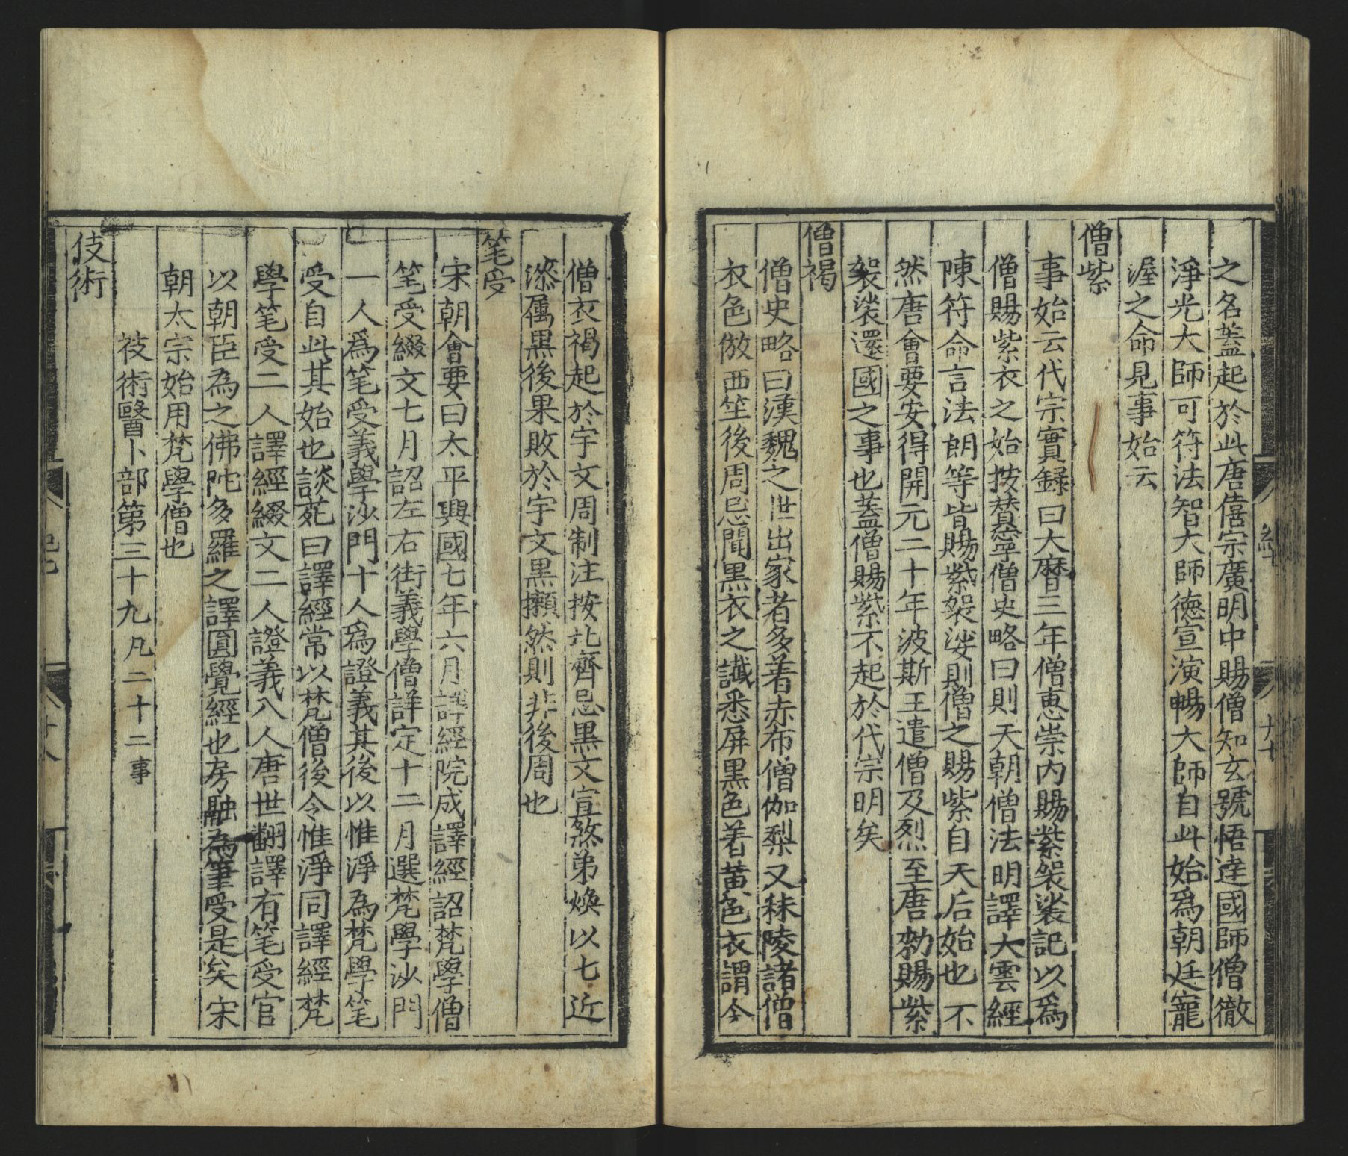 之名蓋起於此唐僖宗廣明中賜僧知玄號悟達國師僧徹
淨光大師可符法智大師德宣演暢大師自此始爲朝廷寵
渥之命見事始云
僧紫
事始云代宗實録曰大曆三年僧惠崇内賜紫袈裟記以爲
僧賜紫衣之始按賛寧僧史略曰則天朝僧法明譯大雲經
陳符命言法朗等皆賜紫袈裟則僧之賜紫自天后始也不
然唐會要安得開元二十年波斯王遣僧及烈至唐勑賜紫
袈裟還國之事也蓋僧賜紫不起於代宗明矣
僧褐
僧史略曰漢魏之世出家者多着赤布僧伽梨又秣陵諸僧
衣色倣西竺後周忌聞黑衣之讖悉屏黑色着黄色衣謂今
僧衣褐起於宇文周制注按北齊忌黑文宣煞弟煥以七近
漆属黒後果敗於宇文黒獺然則非後周也
笔受
宋朝會要曰太平興國七年六月譯經院成譯經詔梵學僧
笔受綴文七月詔左右街義學僧詳定十二月選梵學沙門
一人爲笔受義學沙門十人爲證義其後以惟淨為梵學笔
受自此其始也談苑曰譯經常以梵僧後令惟淨同譯經梵
學笔受二人譯經綴文二人證義八人唐世翻譯有笔受官
以朝臣為之佛陀多羅之譯圓覺經也房融為筆受是矣宋
朝太宗始用梵學僧也
伎術醫卜部第三十九凡二十二事
伎術